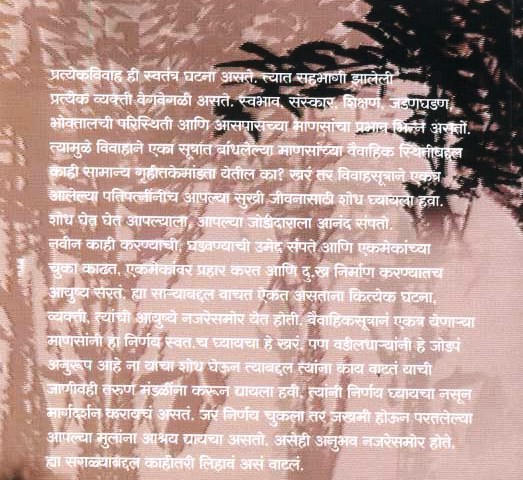 प्रत्येकविवाह ही स्वतंत्र घटना असते. त्यात सहभागी झालेली
प्रत्येक व्यक्ती वेगवेगळी असते. स्वभाव, संस्कार, शिक्षण, जडणघडण,
भोवतालची परिस्थिती आणि आसपासच्या माणसांचा प्रभाव भिन्न असतो.
त्यामुळे विवाहाने एका सूत्रात बांधलेल्या माणसांच्या वैवाहिक स्थितीबद्दल
काही सामान्य गृहीतकेमांडता येतील का? खरं तर विवाहसूत्राने एकत्र
आलेल्या पतिपत्नींनीच आपल्या सुखी जीवनासाठी शोध घ्यायला हवा.
शोध घेत घेत आपल्याला, आपल्या जोडीदाराला आनंद संपतो.
नवीन काही करण्याची, घडवण्याची उमेद संपते आणि एकमेकांच्या
चुका काढत, एकमेकांवर प्रहार करत आणि दु.ख निर्माण करण्यातच
आयुष्य सरतं. ह्या साऱ्याबद्दल वाचत ऐकत असताना कित्येक घटना,
व्यक्ती, त्यांची आयुष्ये नजरेसमोर येत होती. वैवाहिकसूत्रानं एकत्र येणाऱ्या
माणसांनी हा निर्णय स्वत.च घ्यायचा हे खरं, पण वडीलधाऱ्यांनी हे जोडपं
अनुरूप आहे ना याचा शोध घेऊन त्याबद्दल त्यांना काय वाटतं याची
जाणीवही तरुण मंडळींना करून द्यायला हवी. त्यांनी निर्णय घ्यायचा नसून
मार्गदर्शन करायचं असतं. जर निर्णय चुकला तर जखमी होऊन परतलेल्या
आपल्या मुलांना आश्रय द्यायचा असतो. असेही अनुभव नजरेसमोर होते.
ह्या सगळ्याबद्दल काहीतरी लिहावं असं वाटलं.